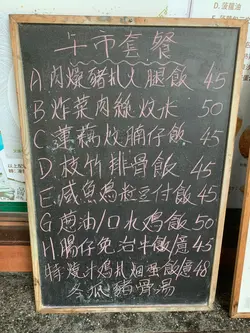 午市套餐
A.肉燥豬扒火腿飯 45
B.炸菜肉絲炆米 50
C.蓮藕炆腩仔飯 45
D.枝竹排骨飯 45
E.咸魚鸡粒豆付飯 45
G.葱油/口水鸡飯 50
H.腸仔免治牛飯 45
特燒汁鸡扒烟蛋飯 48
冬瓜豬骨湯